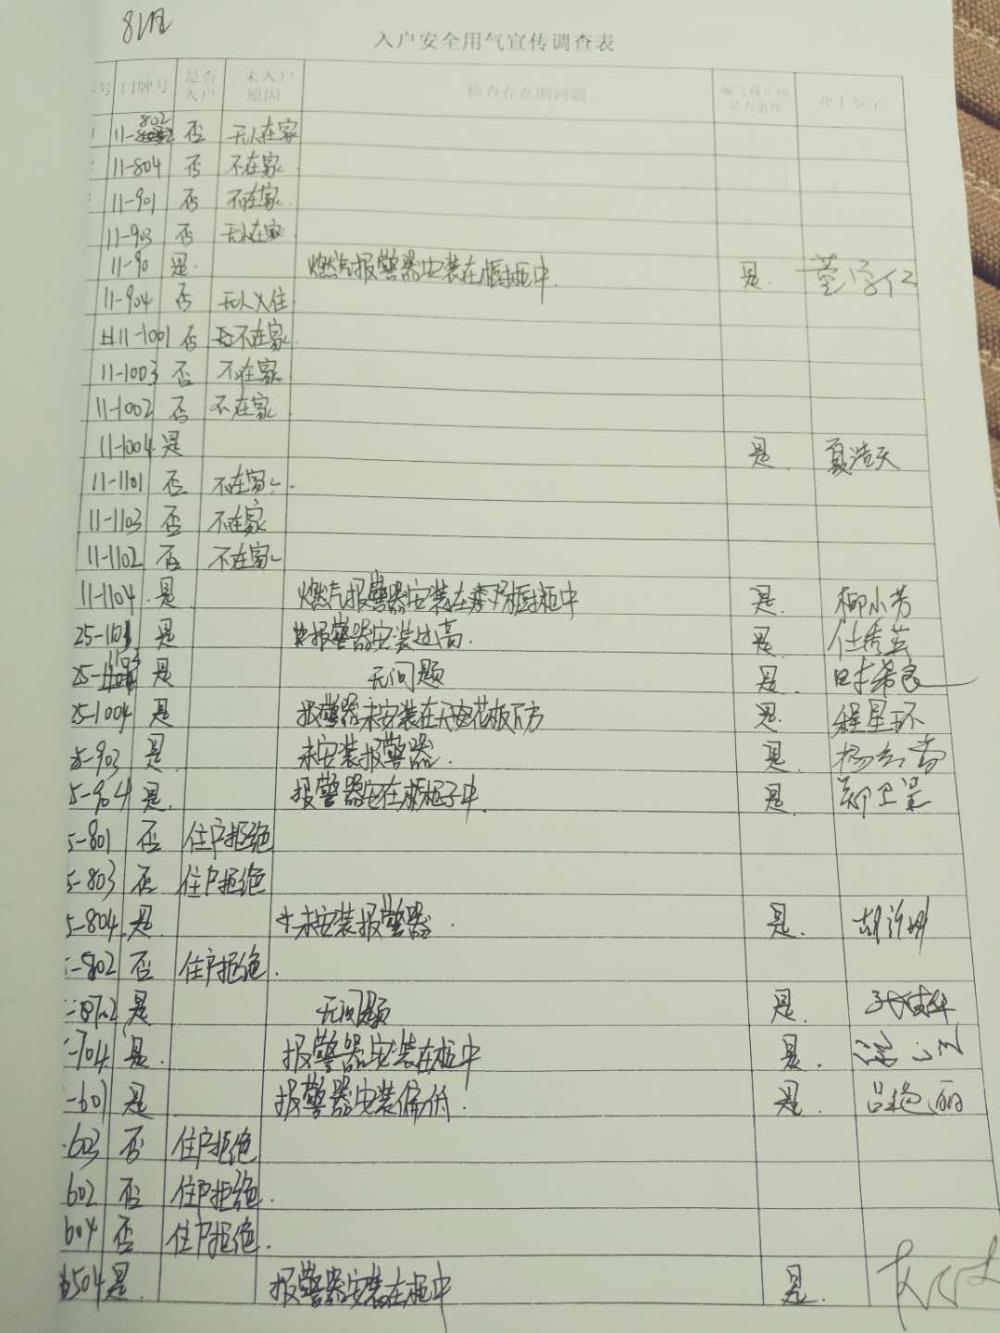 入户安全用气宣传调查表
号 门牌号 是否入户 未入户原因 检查存在的问题 业主签字
11-802 否 无人在家
11-804 否 不在家
11-901 否 不在家
11-903 否 无人在家
11-90 是 燃气报警器安装在橱柜中 是
11-904 否 无人入住
11-1001 否 不在家
11-1003 否 不在家
11-1002 否 不在家
11-1004 是 是 夏浩天
11-1101 否 不在家
11-1103 否 不在家
11-1102 否 不在家
11-1104 是 燃气报警器安装在橱柜中 是 柳小芳
25-1101 是 报警器安装过高 是 任秀芸
25- 是 无问题 是 时希良
25-1004 是 报警器未安装在天花板下方 是 程星环
5-903 是 未安装报警器 是
5-904 是 报警器在橱柜子中 是 郑卫星
5-801 否 住户拒绝
5-803 否 住户拒绝
5-804 是 未安装报警器 是
-802 否 住户拒绝
是 无问题 是
-704 是 报警器安装在柜中 是
-601 是 报警器安装偏低 是 吕艳丽
603 否 住户拒绝
602 否 住户拒绝
604 否 住户拒绝
504 是 报警器安装在柜中 是